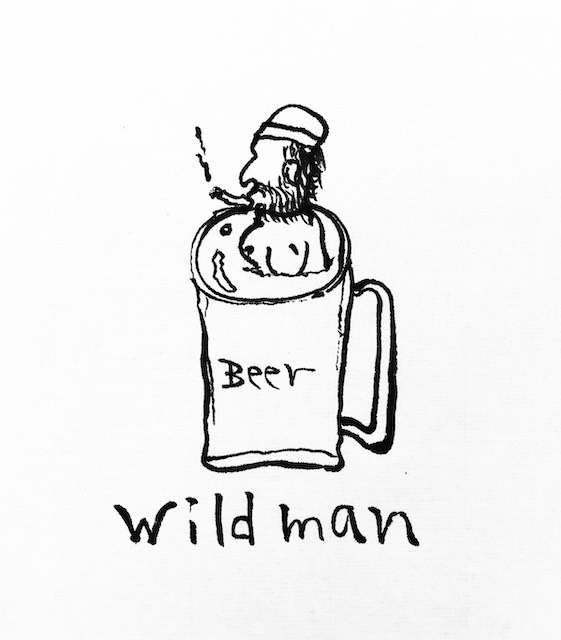 Beer
wild man